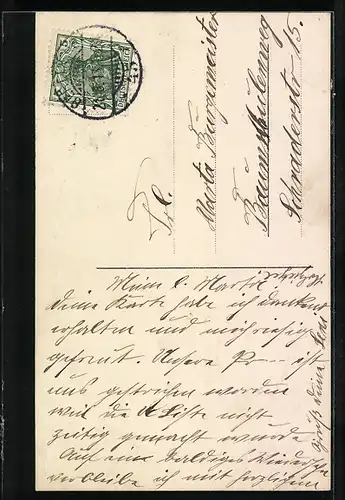 Frl.
Marta Burgemeister
Baumschulenweg
Schraderstr 15.
Mein l. Martel
deine Karte habe ich dankend
erhalten und mich riesig
gefreut. Unsere Pr--- ist
uns gestrichen worden
weil die Liste nicht
zeitig gemacht wurde
Auf ein baldiges Wiedersehn
verbleibe ich mit herzlichem
Gruß deine